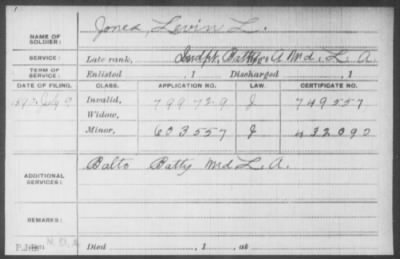 NAME OF SOLDIER: Jones, Levin L.
SERVICE: Late rank, Indpt. Batty A Md. L. A.
TERM OF SERVICE: Enlisted , 1 Discharged , 1
DATE OF FILING. CLASS. APPLICATION NO. LAW. CERTIFICATE NO.
July 9 Invalid, 799729 J 749557
Widow,
Minor, 623557 J 432092
ADDITIONAL SERVICES: Balto Batty Md L. A.
REMARKS:
Died , 1 , at